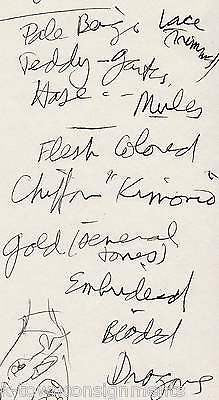 Pale Beige Lace
(trimmed)
Teddy - Garts,
Hose -- Mules
Flesh Colored
Chiffon "Kimono"
Gold (General
Tones)
Embrided
Beaded
Dragons